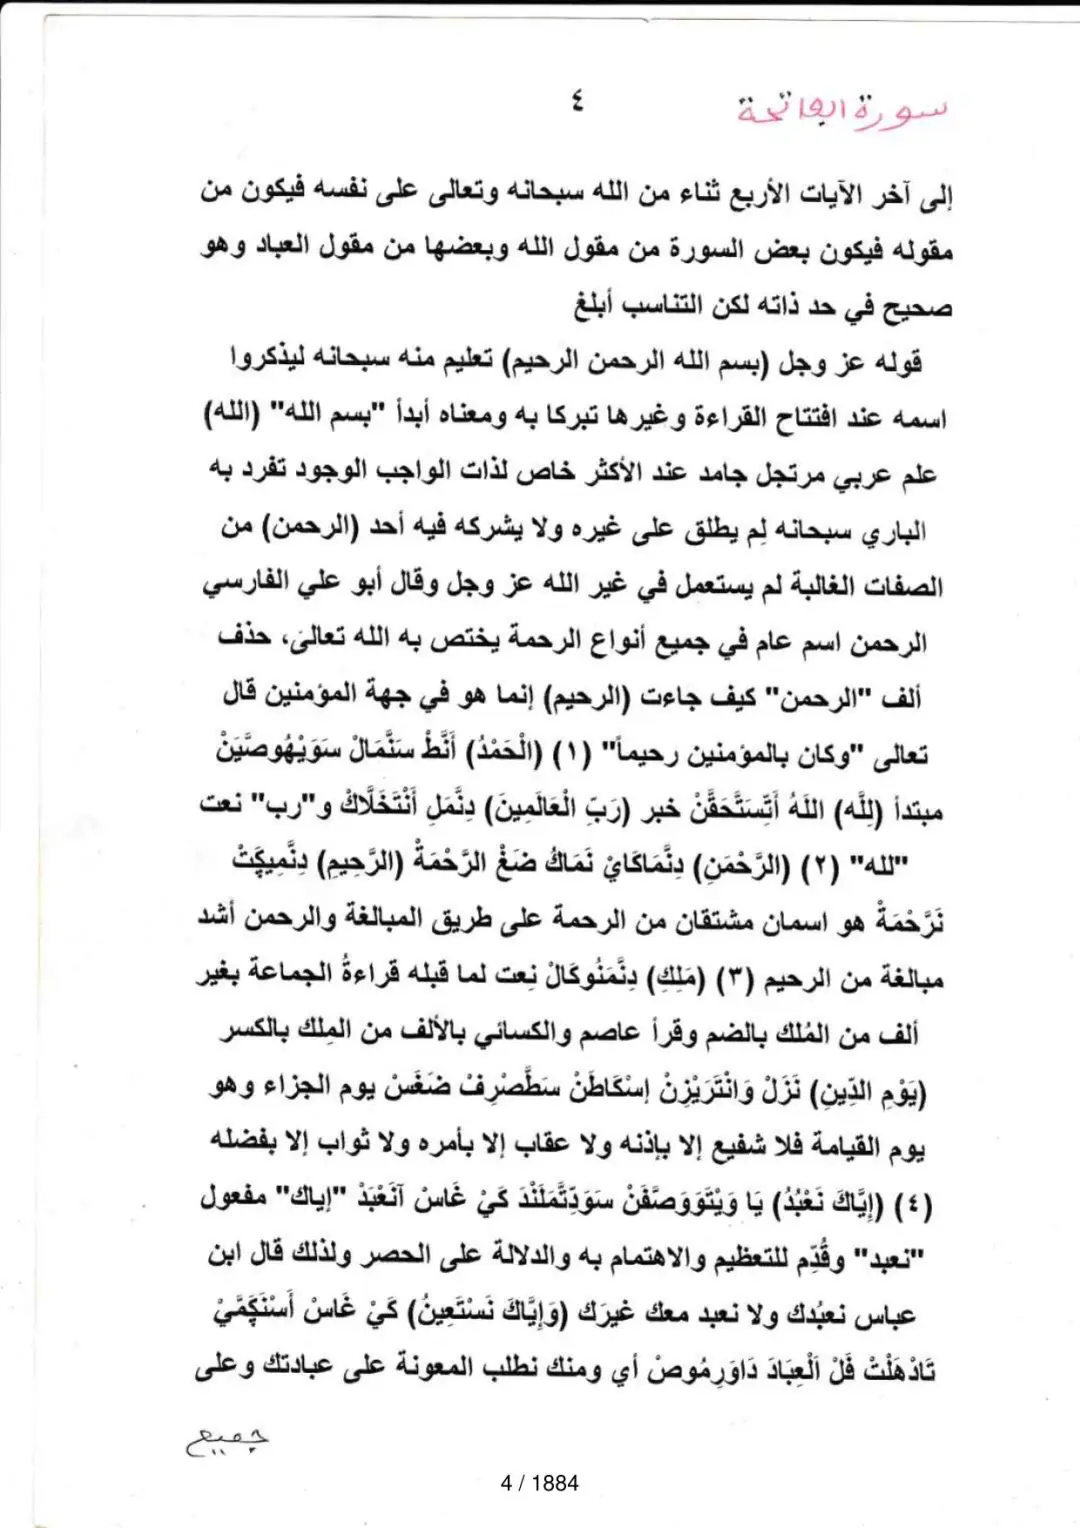 سورة الفاتحة
٤
إلى آخر الآيات الأربع ثناء من الله سبحانه وتعالى على نفسه فيكون من
مقوله فيكون بعض السورة من مقول الله وبعضها من مقول العباد وهو
صحيح في حد ذاته لكن التناسب أبلغ
قوله عز وجل (بسم الله الرحمن الرحيم) تعليم منه سبحانه ليذكروا
اسمه عند افتتاح القراءة وغيرها تبركا به ومعناه أبدأ "بسم الله" (الله)
علم عربي مرتجل جامد عند الأكثر خاص لذات الواجب الوجود تفرد به
الباري سبحانه لم يطلق على غيره ولا يشركه فيه أحد (الرحمن) من
الصفات الغالبة لم يستعمل في غير الله عز وجل وقال أبو علي الفارسي
الرحمن اسم عام في جميع أنواع الرحمة يختص به الله تعالى، حذف
ألف "الرحمن" كيف جاءت (الرحيم) إنما هو في جهة المؤمنين قال
تعالى "وكان بالمؤمنين رحيماً" (١) (الْحَمْدُ) أَنَّطْ سَنَّمَالْ سَوَيْهُوصَّيَنْ
مبتدأ (لِلَّه) اللَهُ أَتِّسَتَّحَقَّنْ خبر (رَبِّ الْعَالَمِينَ) دِنَّمَلِ أَنْتَخَلَّاكْ و"رب" نعت
"لله" (٢) (الرَّحْمَنِ) دِنَّمَاكَايْ نَمَاكُ ضَغْ الرَّحْمَةْ (الرَّحِيمِ) دِنَّمِيكَِتْ
نَرَّحْمَةْ هو اسمان مشتقان من الرحمة على طريق المبالغة والرحمن أشد
مبالغة من الرحيم (٣) (مَلِكِ) دِنَّمَنُوكَالْ نِعت لما قبله قراءةُ الجماعة بغير
ألف من المُلك بالضم وقرأ عاصم والكسائي بالألف من المِلك بالكسر
(يَوْمِ الدِّينِ) نَزَلْ وَانْتَرَيْزِنْ إِسْكَاطَنْ سَطَّصْرِفْ ضَغَسْ يوم الجزاء وهو
يوم القيامة فلا شفيع إلا بإذنه ولا عقاب إلا بأمره ولا ثواب إلا بفضله
(٤) (إِيَّاكَ نَعْبُدُ) يَا وَيْتَوَوَصَّفَنْ سَوَدِّتَّمَلَنْدَ كَيْ غَاسْ آنَعْبَدْ "إياك" مفعول
"نعبد" وقُدِّم للتعظيم والاهتمام به والدلالة على الحصر ولذلك قال ابن
عباس نعبُدك ولا نعبد معك غيرَك (وَإِيَّاكَ نَسْتَعِينُ) كَيْ غَاسْ أَسْنَكِمَّيْ
تَادْهَلْتْ فَلْ اَلْعِبَادَ دَاوَرِمُوصْ أي ومنك نطلب المعونة على عبادتك وعلى
جميع
4 / 1884